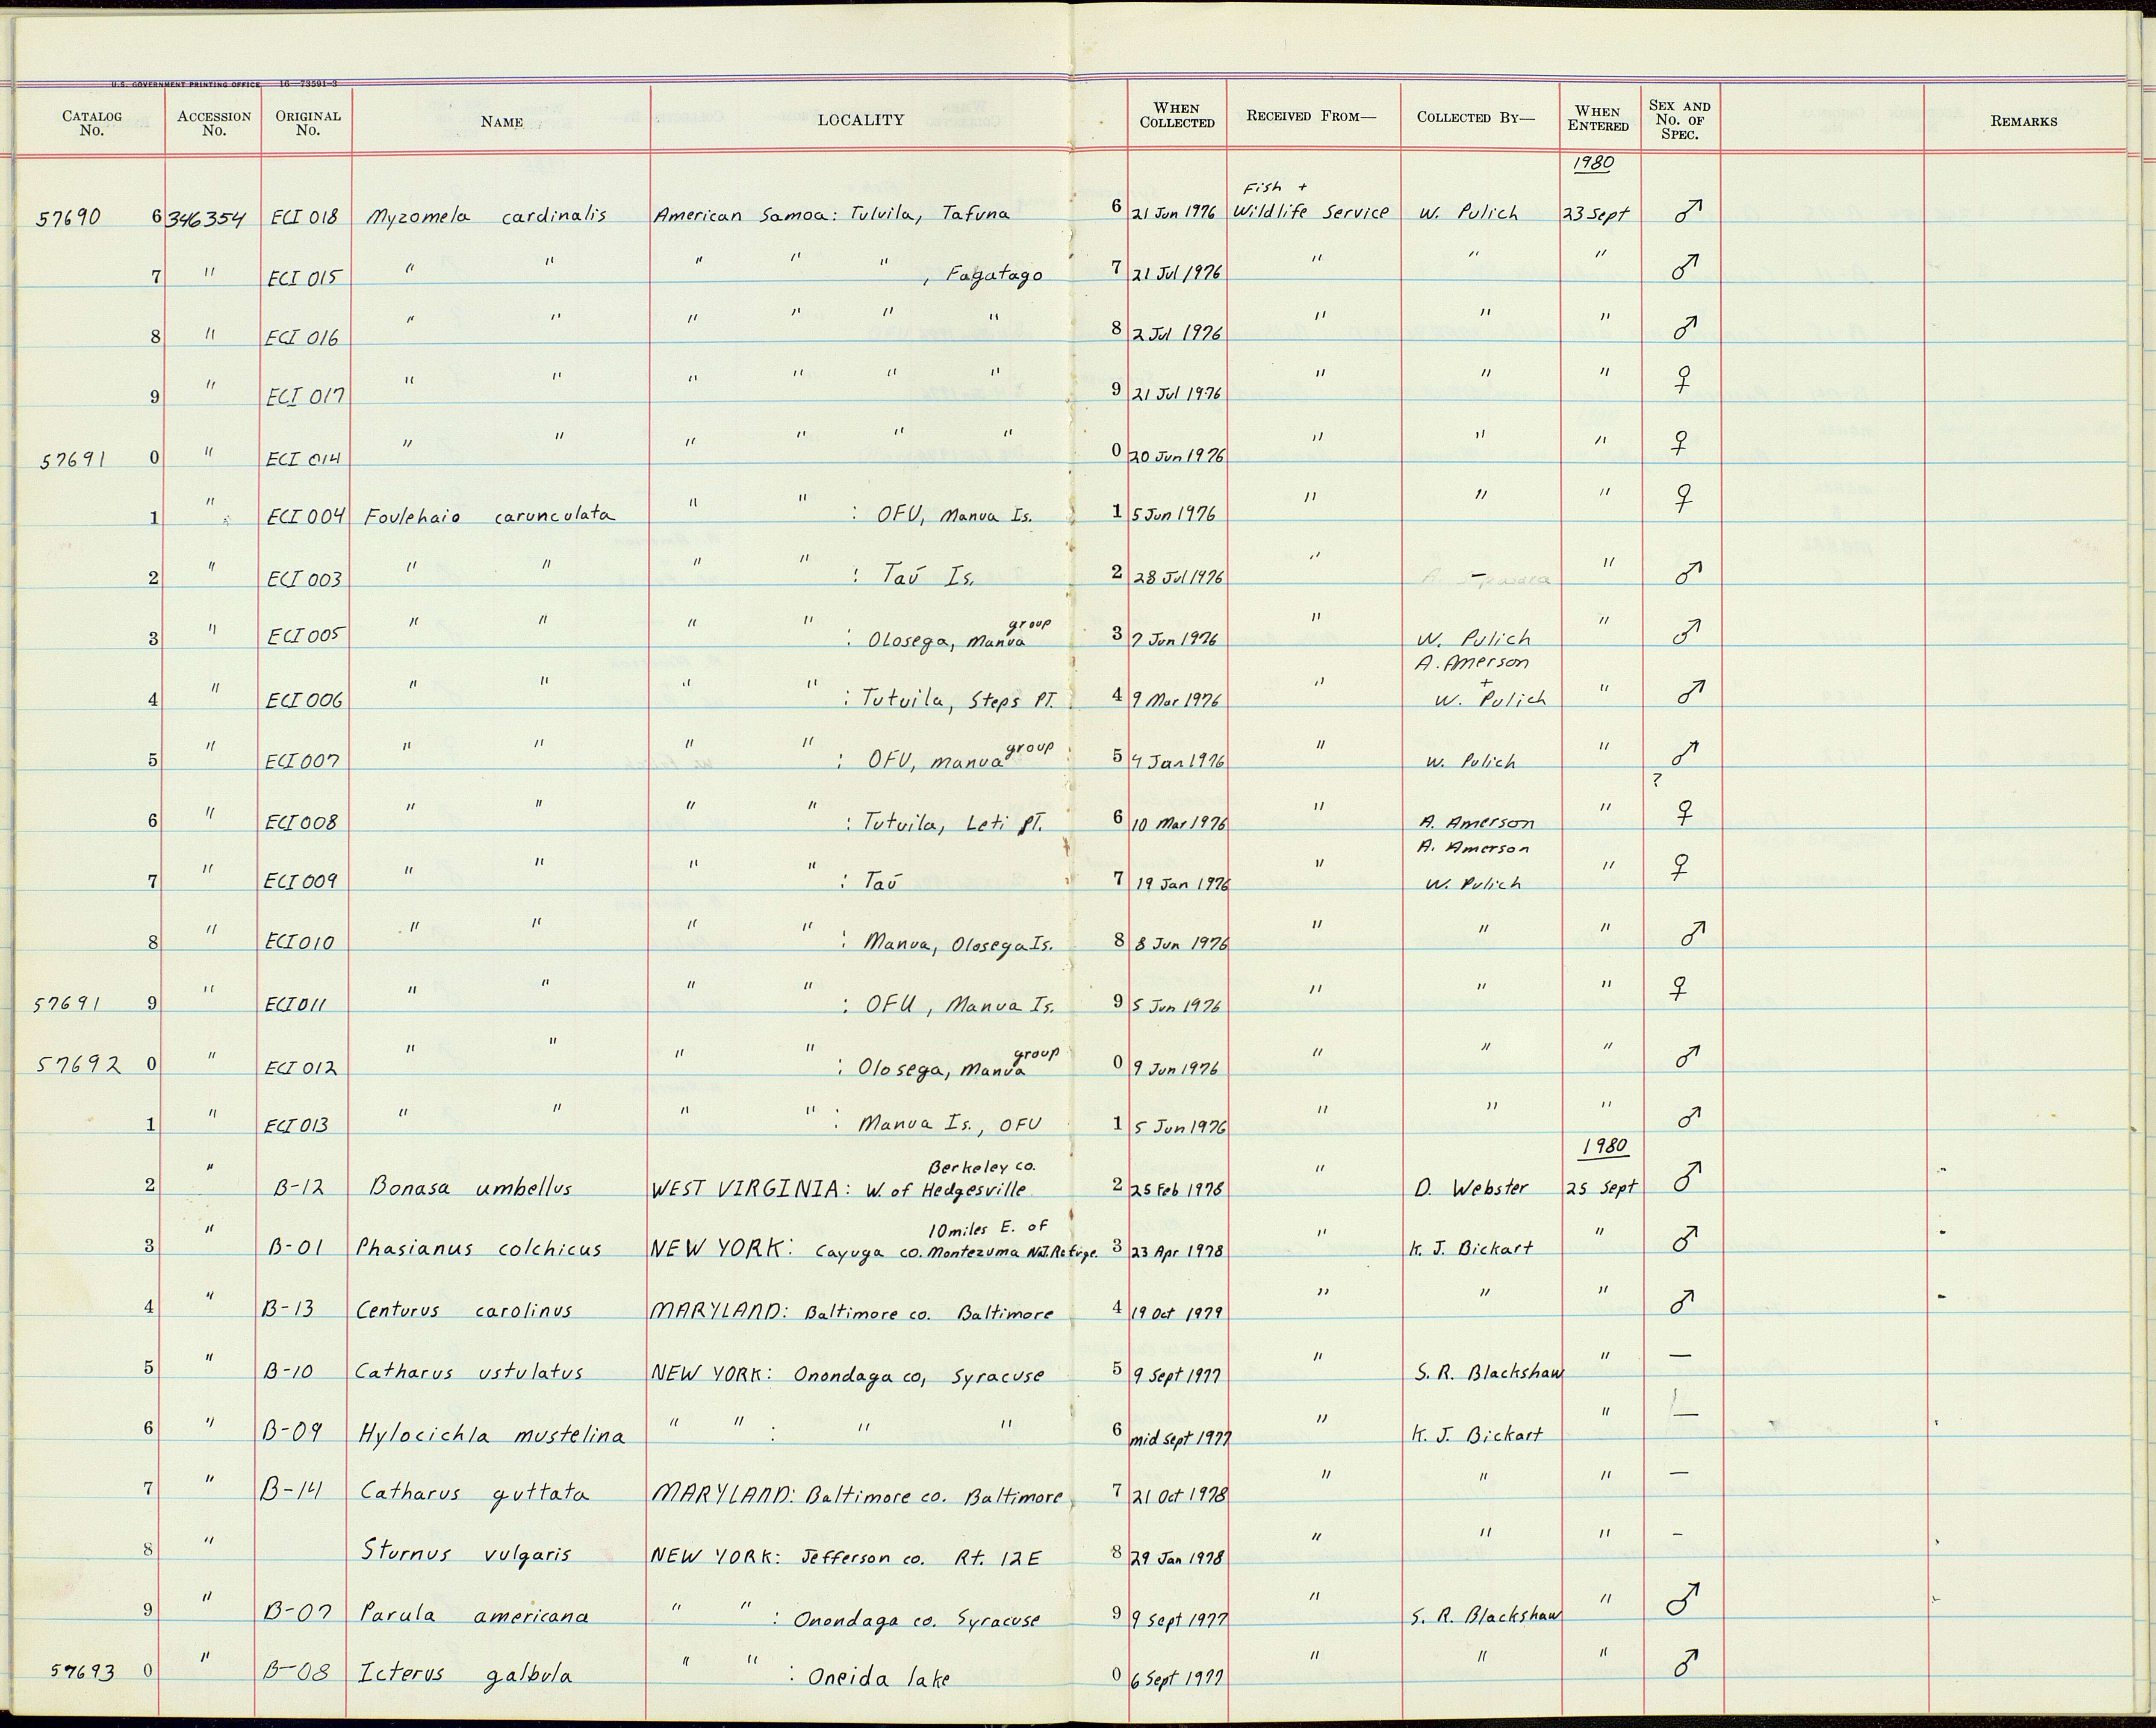 U.S. GOVERNMENT PRINTING OFFICE 16—73591-3
CATALOG No. ACCESSION No. ORIGINAL No. NAME LOCALITY WHEN COLLECTED RECEIVED FROM— COLLECTED BY— WHEN ENTERED SEX AND No. OF SPEC. REMARKS
1980
Fish +
57690 6 346354 ECI 018 Myzomela cardinalis American Samoa: Tulvila, Tafuna 6 21 Jun 1976 Wildlife Service W. Pulich 23 Sept ♂
7 " ECI 015 " " " " " , Fagatago 7 21 Jul 1976 " " " ♂
8 " ECI 016 " " " " " " 8 2 Jul 1976 " " " ♂
9 " ECI 017 " " " " " " 9 21 Jul 1976 " " " ♀
57691 0 " ECI 014 " " " " " " 0 20 Jun 1976 " " " ♀
1 " ECI 004 Foulehaio carunculata " " : OFU, Manua Is. 1 5 Jun 1976 " " " ♀
2 " ECI 003 " " " " : Taū Is. 2 28 Jul 1976 " — " ♂
group
3 " ECI 005 " " " " : Olosega, Manua 3 7 Jun 1976 " W. Pulich " ♂
A. Amerson
+
4 " ECI 006 " " " " : Tutuila, Steps PT. 4 9 Mar 1976 " W. Pulich " ♂
group
5 " ECI 007 " " " " : OFU, manua 5 4 Jan 1976 " W. Pulich " ♂
?
6 " ECI 008 " " " " : Tutuila, Leti PT. 6 10 Mar 1976 " A. Amerson " ♀
A. Amerson
7 " ECI 009 " " " " : Taū 7 19 Jan 1976 " W. Pulich " ♀
8 " ECI 010 " " " " : Manua, Olosega Is. 8 8 Jun 1976 " " " ♂
57691 9 " ECI 011 " " " " : OFU, Manua Is. 9 5 Jun 1976 " " " ♀
group
57692 0 " ECI 012 " " " " : Olosega, Manua 0 9 Jun 1976 " " " ♂
1 " ECI 013 " " " " : Manua Is., OFU 1 5 Jun 1976 " " " ♂
1980
Berkeley co.
2 " B-12 Bonasa umbellus WEST VIRGINIA: W. of Hedgesville 2 25 Feb 1978 " D. Webster 25 Sept ♂
10 miles E. of
3 " B-01 Phasianus colchicus NEW YORK: Cayuga co. Montezuma Nat. Refuge. 3 23 Apr 1978 " K. J. Bickart " ♂
4 " B-13 Centurus carolinus MARYLAND: Baltimore co. Baltimore 4 19 Oct 1979 " " " ♂
5 " B-10 Catharus ustulatus NEW YORK: Onondaga co, Syracuse 5 9 Sept 1977 " S. R. Blackshaw " —
6 " B-09 Hylocichla mustelina " " : " " 6 mid Sept 1977 " K. J. Bickart " —
7 " B-14 Catharus guttata MARYLAND: Baltimore co. Baltimore 7 21 Oct 1978 " " " —
8 " Sturnus vulgaris NEW YORK: Jefferson co. Rt. 12E 8 29 Jan 1978 " " " —
9 " B-07 Parula americana " " : Onondaga co. Syracuse 9 9 Sept 1977 " S. R. Blackshaw " ♂
57693 0 " B-08 Icterus galbula " " : Oneida lake 0 6 Sept 1977 " " " ♂